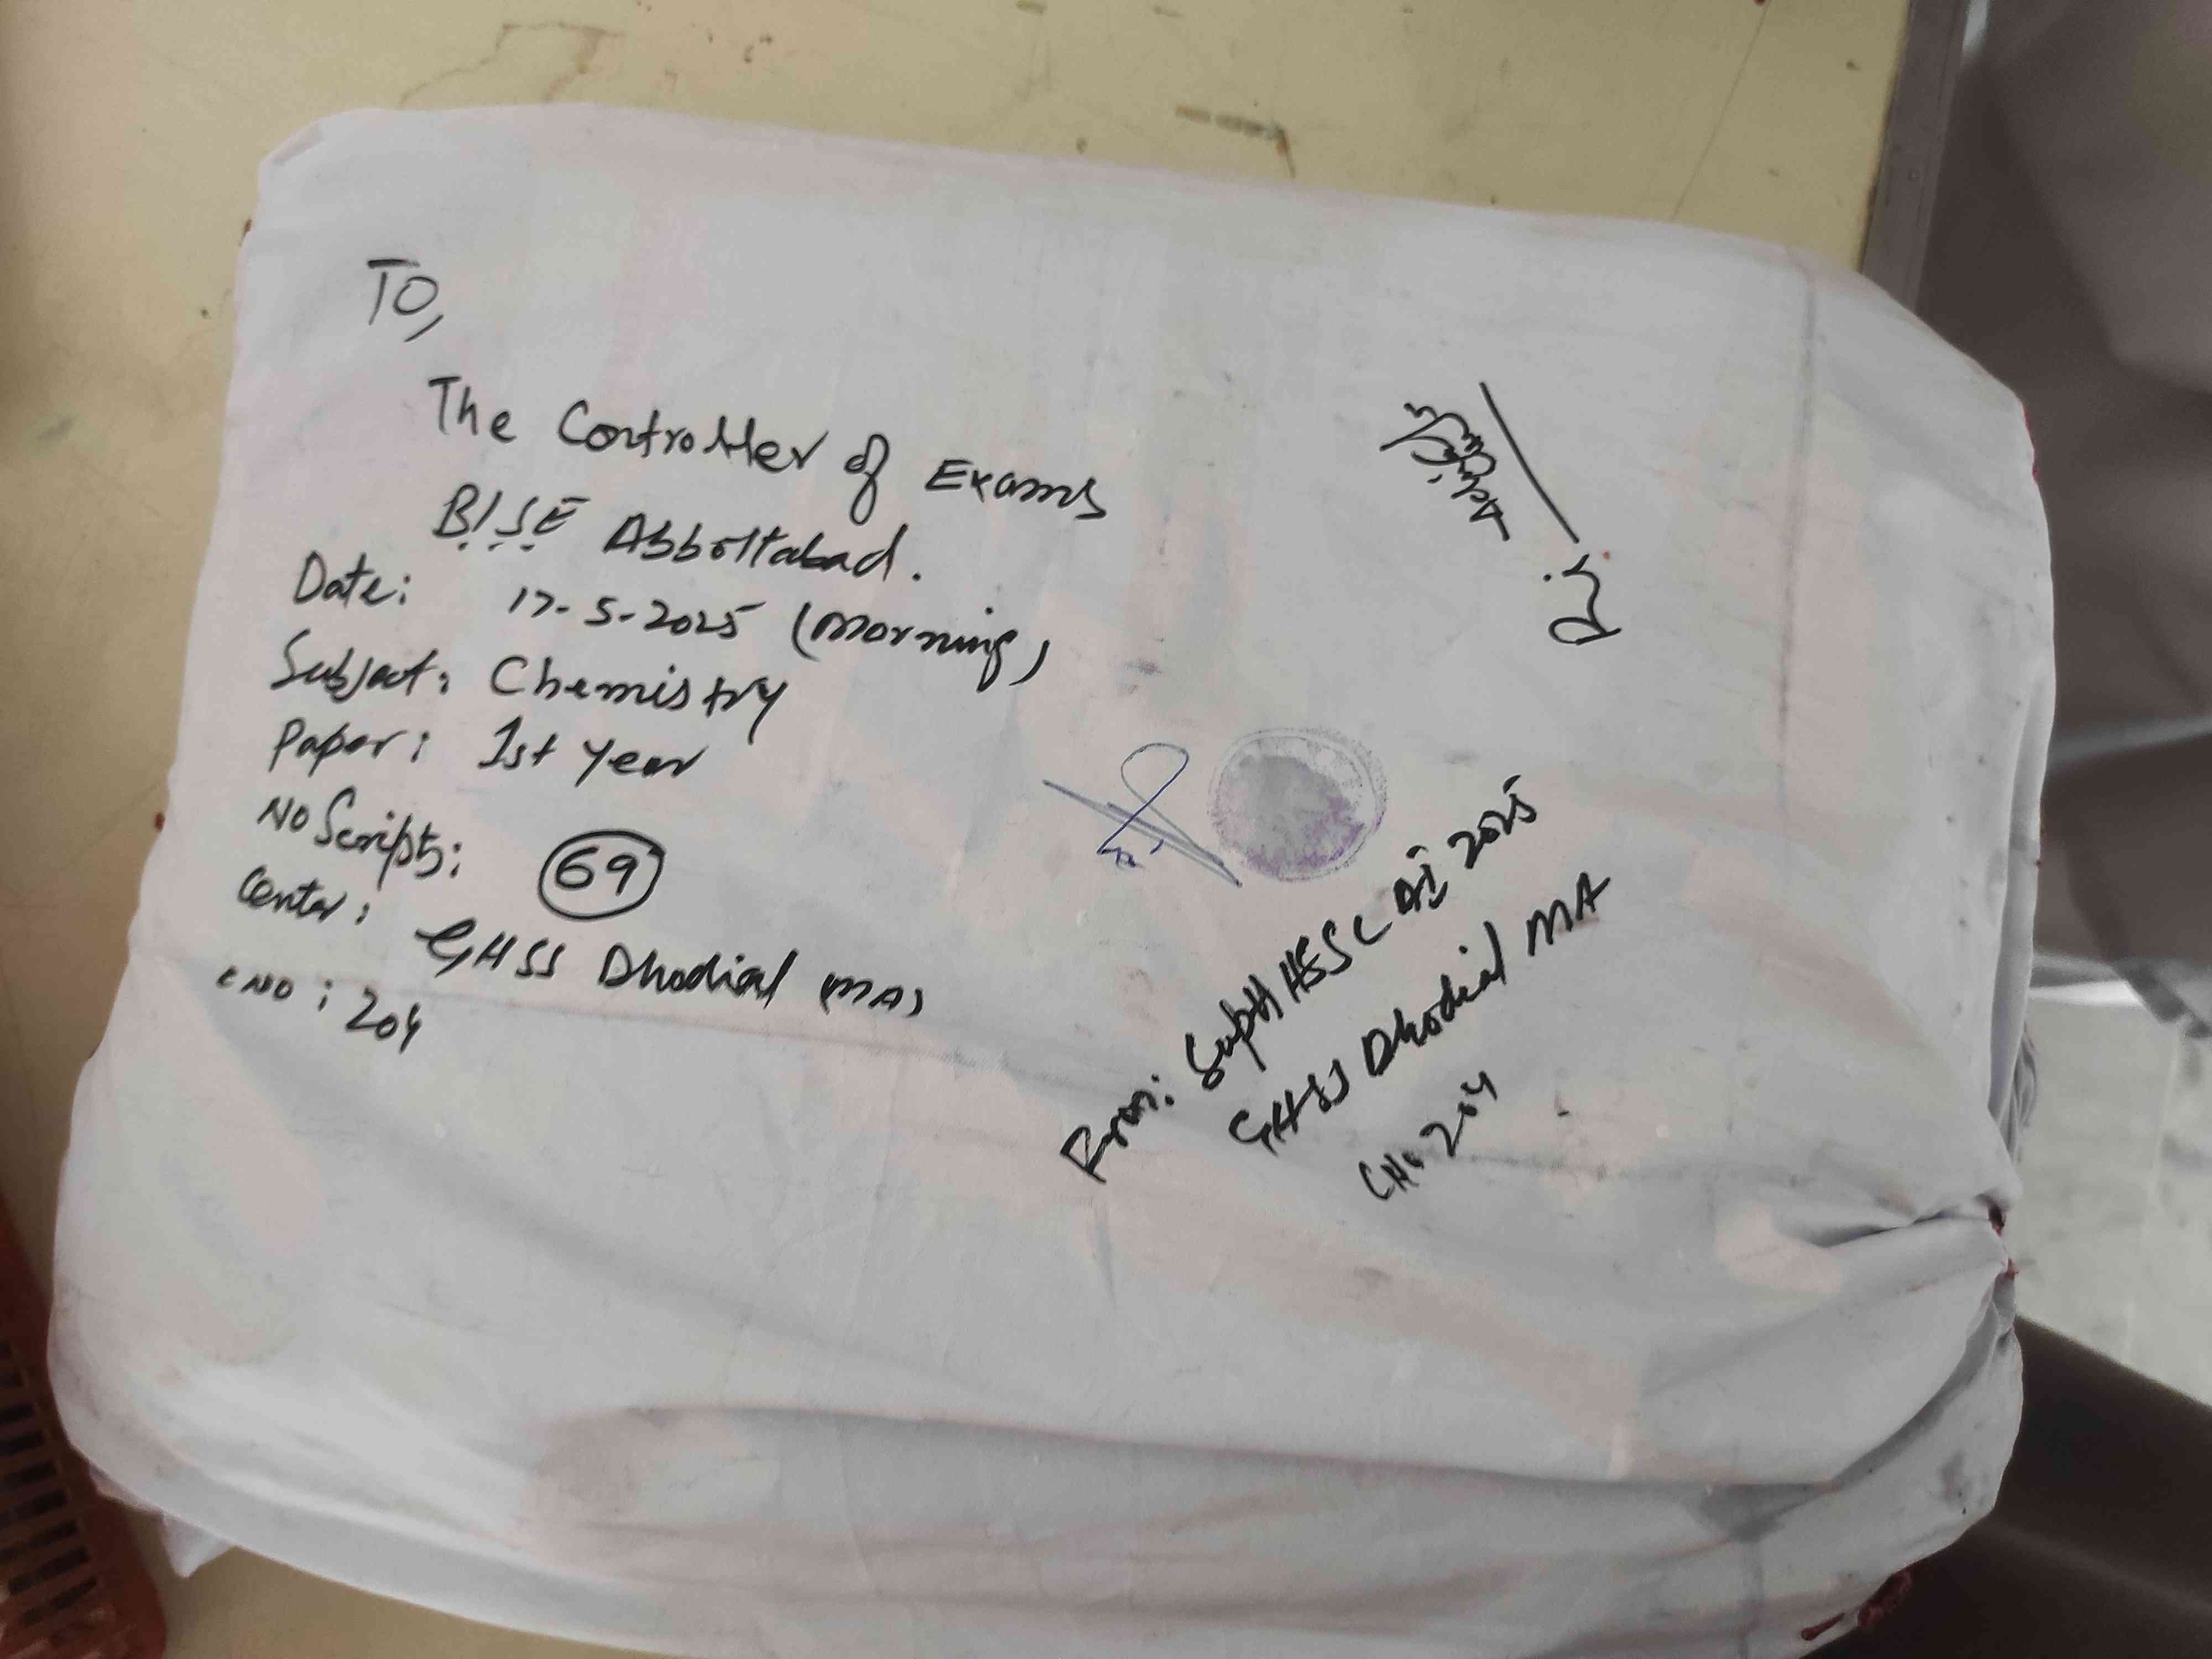 To,
The Controller of Exams
B.I.S.E Abbottabad.
Date: 17-5-2025 (Morning)
Subject: Chemistry
Paper: 1st year
No Scripts: 69
Center: GHSS Dhodial (MA)
CNO: 204
From: Supdt HSSC AI 2025
GHSS Dhodial MA
CNo 204